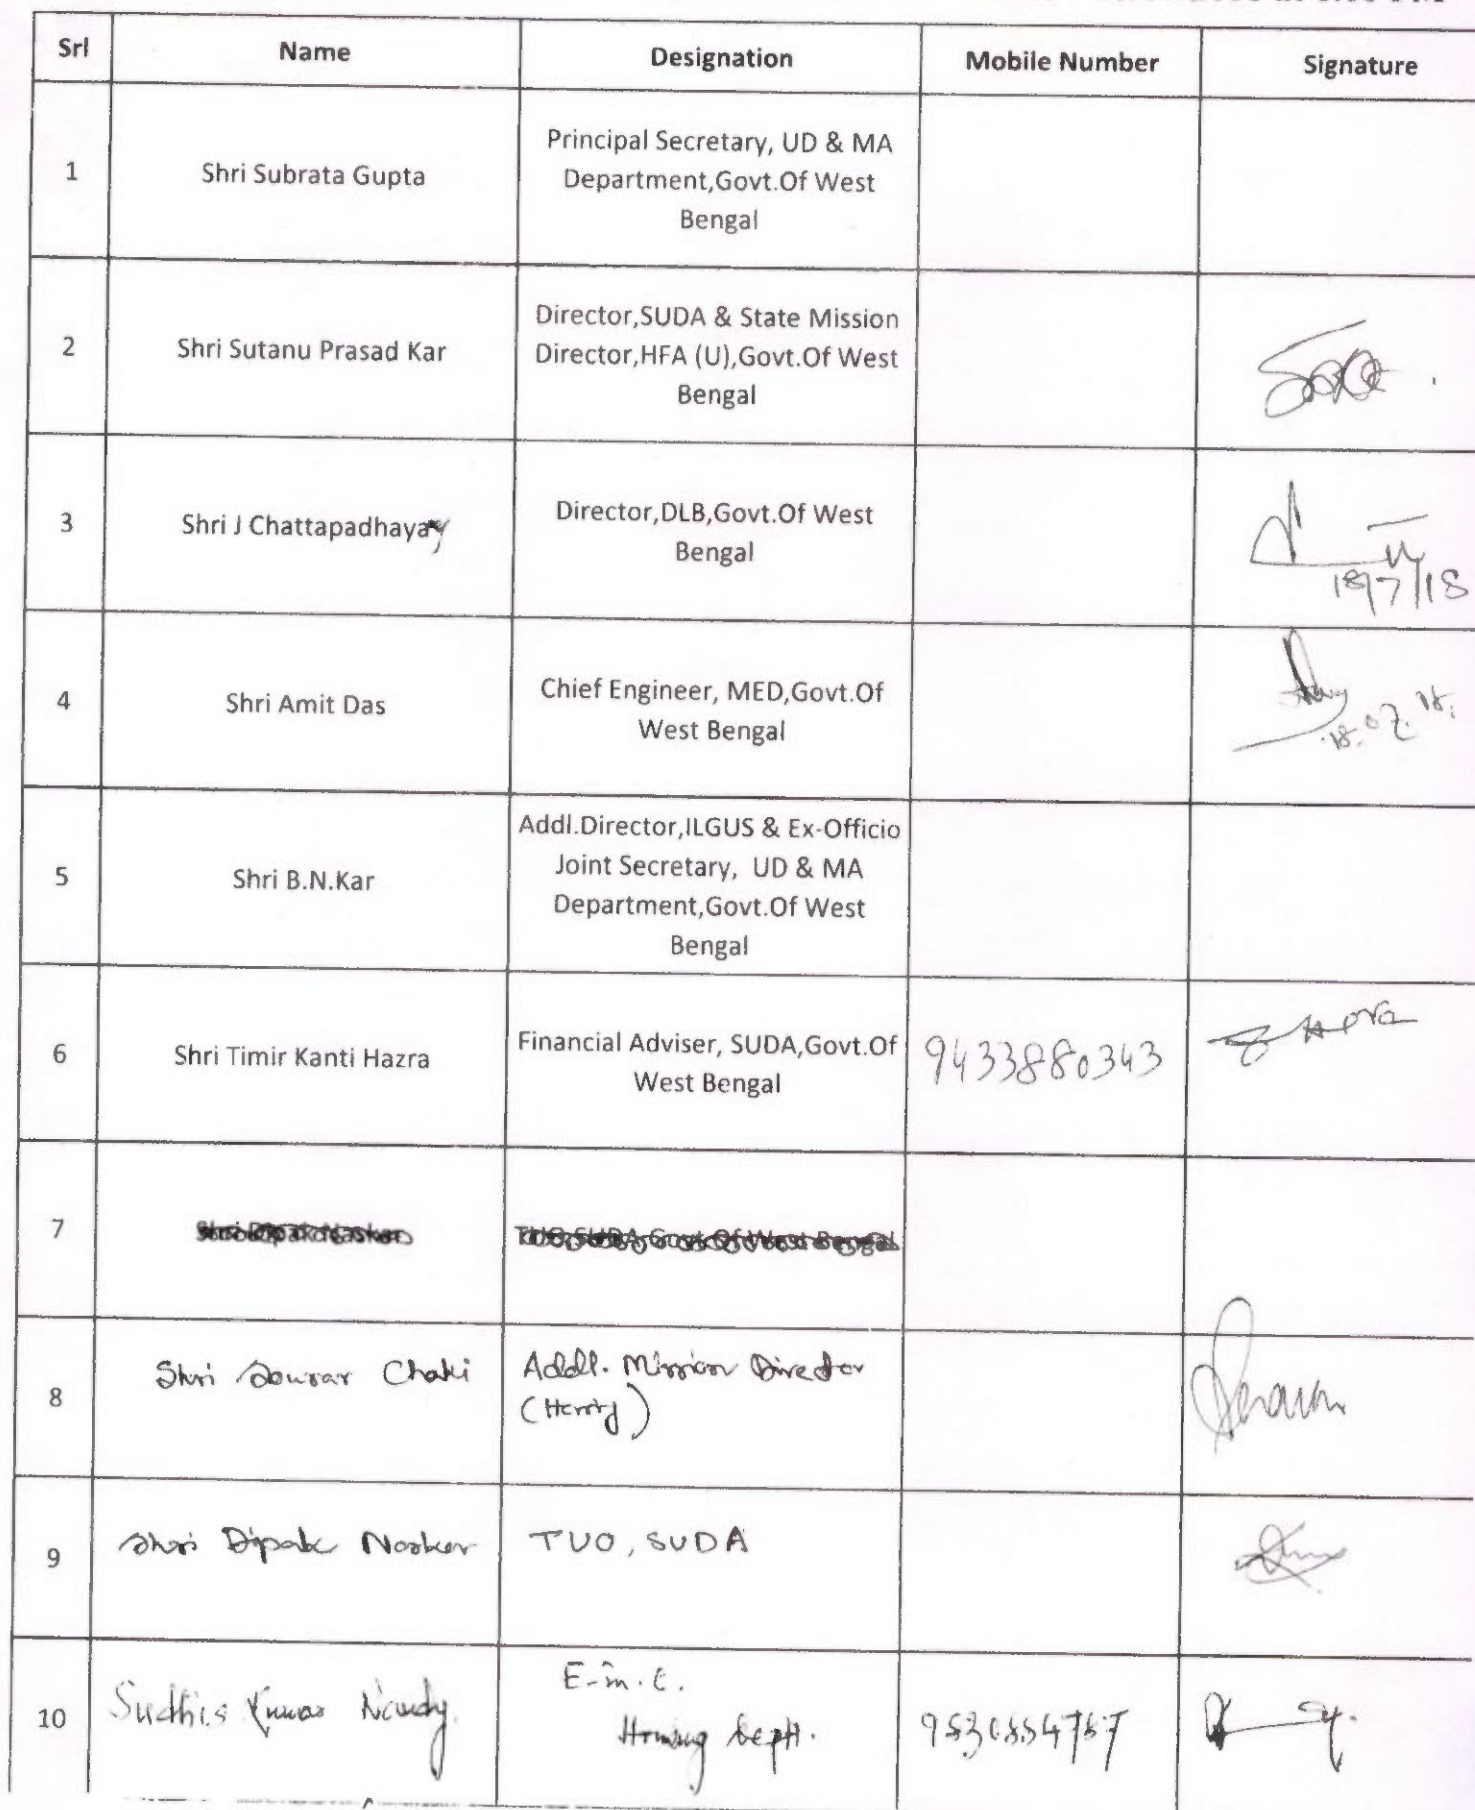 Srl Name Designation Mobile Number Signature
1 Shri Subrata Gupta Principal Secretary, UD & MA
Department,Govt.Of West
Bengal
2 Shri Sutanu Prasad Kar Director,SUDA & State Mission
Director,HFA (U),Govt.Of West
Bengal
3 Shri J Chattapadhayay Director,DLB,Govt.Of West
Bengal
18/7/18
4 Shri Amit Das Chief Engineer, MED,Govt.Of
West Bengal
18.07.18.
5 Shri B.N.Kar Addl.Director,ILGUS & Ex-Officio
Joint Secretary, UD & MA
Department,Govt.Of West
Bengal
6 Shri Timir Kanti Hazra Financial Adviser, SUDA,Govt.Of
West Bengal
9433880343
7 Shri Dipak Naskar TUO,SUDA,Govt.Of West Bengal
8 Shri Sourav Chaki Addl. Mission Director
9 Shri Dipak Naskar TUO, SUDA
10 Kumar Nandy E-in-C.
Housing Deptt.